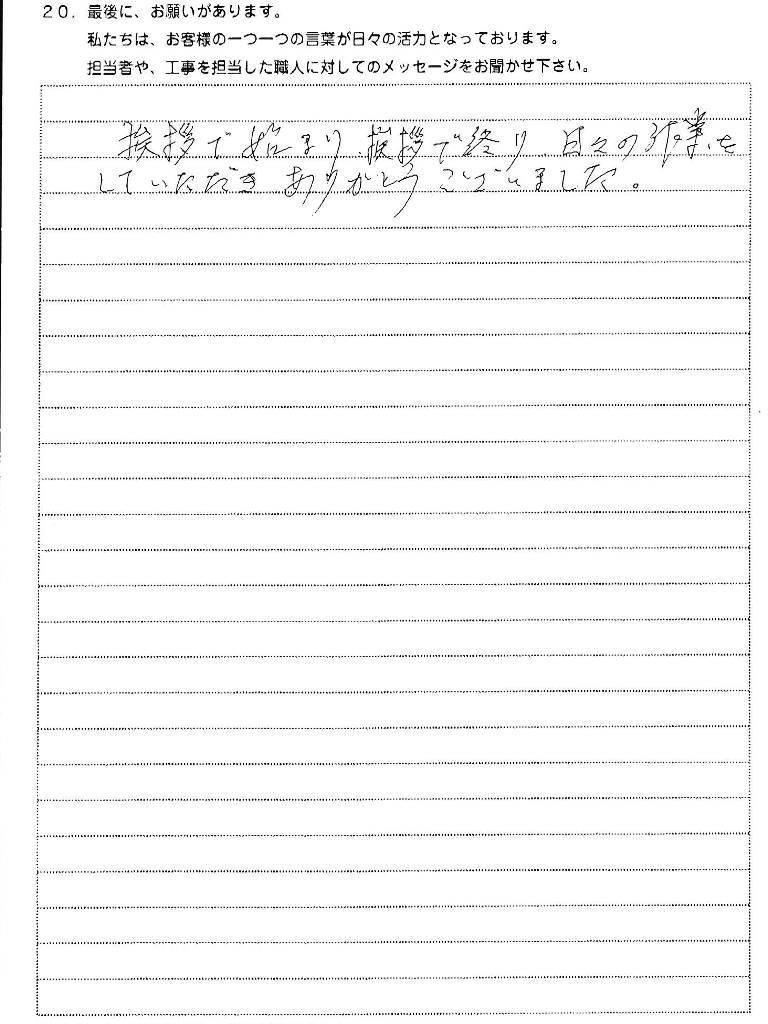 20. 最後に、お願いがあります。
私たちは、お客様の一つ一つの言葉が日々の活力となっております。
担当者や、工事を担当した職人に対してのメッセージをお聞かせ下さい。
挨拶で始まり、挨拶で終り、日々の作業を
していただき ありがとうございました。